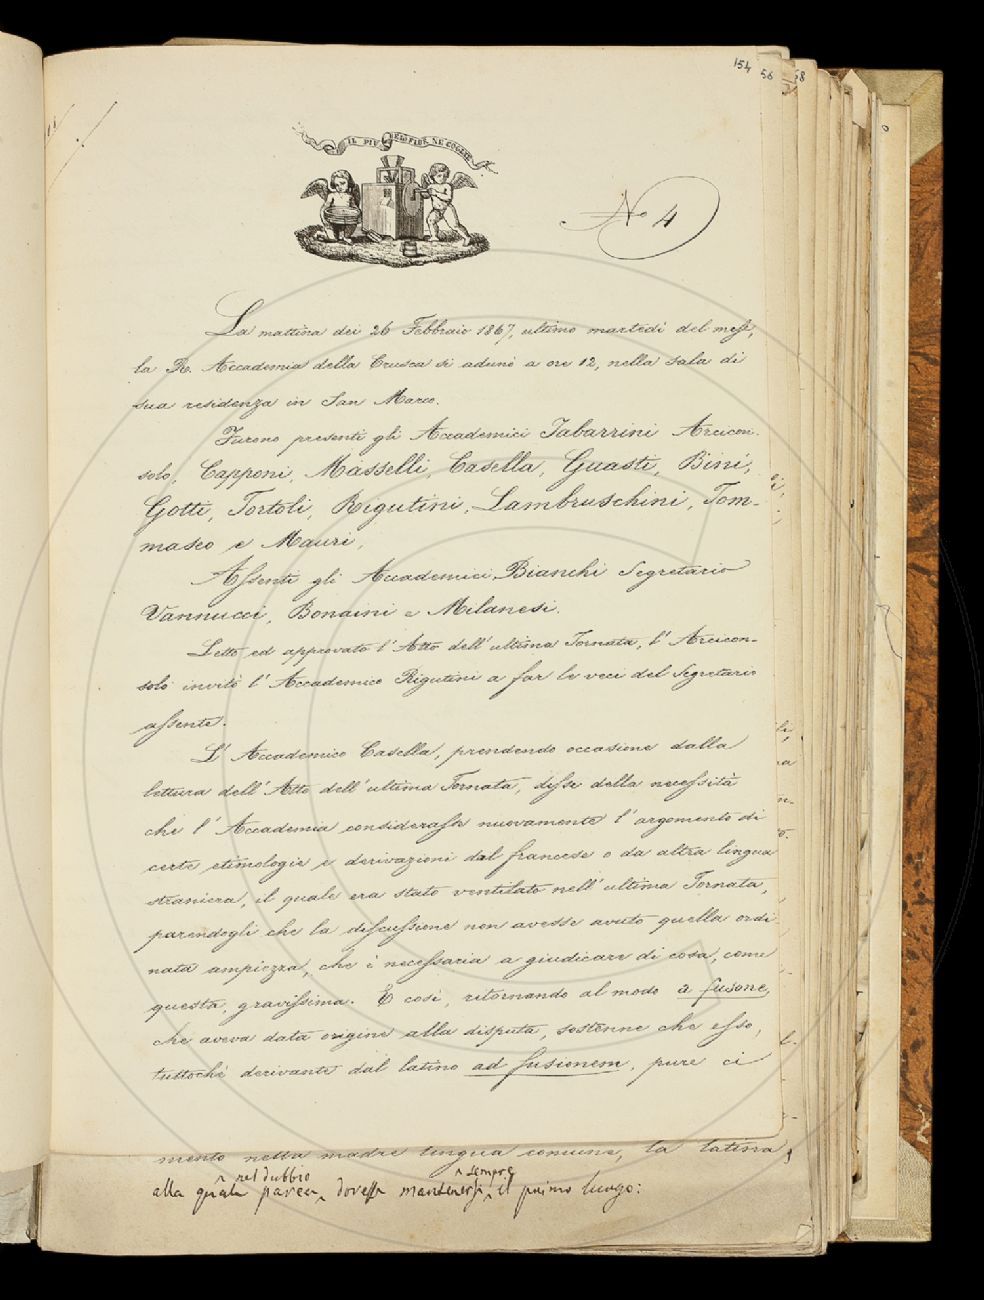 154 56 58
IL PIÙ BEL FIOR NE COGLIE
No 4
La mattina dei 26 Febbraio 1867, ultimo martedì del mese,
la R. Accademia della Crusca si adunò a ore 12, nella sala di
sua residenza in San Marco.
Furono presenti gli Accademici Tabarrini Arcicon-
solo, Capponi, Masselli, Casella, Guasti, Bini,
Gotti, Tortoli, Rigutini, Lambruschini, Tom-
maseo e Mauri,
Assenti gli Accademici Bianchi Segretario
Vannucci, Bonaini e Milanesi.
Letto ed approvato l'Atto dell'ultima Tornata, l'Arcicon-
solo invitò l'Accademico Rigutini a far le veci del Segretario
assente.
L'Accademico Casella, prendendo occasione dalla
lettura dell'Atto dell'ultima Tornata, disse della necessità
che l'Accademia considerasse nuovamente l'argomento di
certe etimologie e derivazioni dal francese o da altra lingua
straniera, il quale era stato ventilato nell'ultima Tornata,
parendogli che la discussione non avesse avuto quella ordi
nata ampiezza, che è necessaria a giudicare di cosa, come
questa, gravissima. E così, ritornando al modo a fusone,
che aveva data origine alla disputa, sostenne che esso,
tuttochè derivante dal latino ad fusionem, pure ci
mento nella madre lingua comune, la latina,
nel dubbio sempre
alla quale parea, dovesse mantenersi il primo luogo: